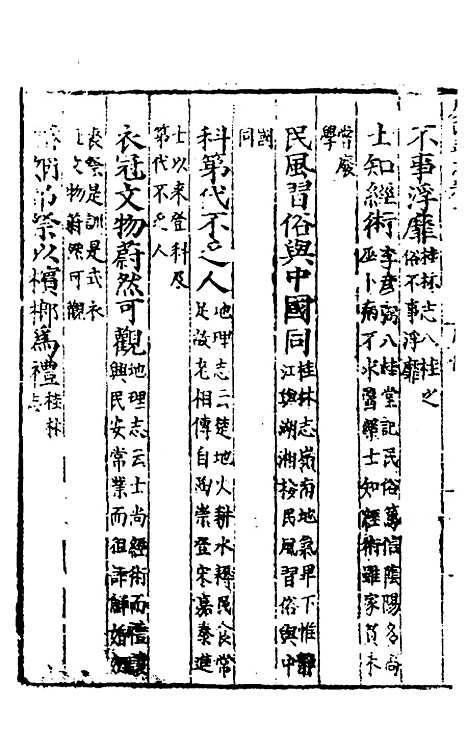 不事浮靡桂林志八桂之
俗不事浮靡
士知經術李彦弼八桂堂記民俗篤信陰陽多尚
巫卜病不求醫藥士知經術雖家貧未
嘗廢
學
民風習俗與中國同桂林志嶺南地氣卑下惟靜
江與湖湘接民風習俗與中
國
同
科第代不乏人地理志云楚地火耕水耨民食常
足故老相傳自為崇登宋嘉泰進
士以來登科及
第代不乏人
衣冠文物蔚然可觀地理志云士尚經術而
興民安常業而徂詐鮮婚
喪祭是訓是式衣
冠文物蔚然可觀
祭以檳榔為禮桂林
志